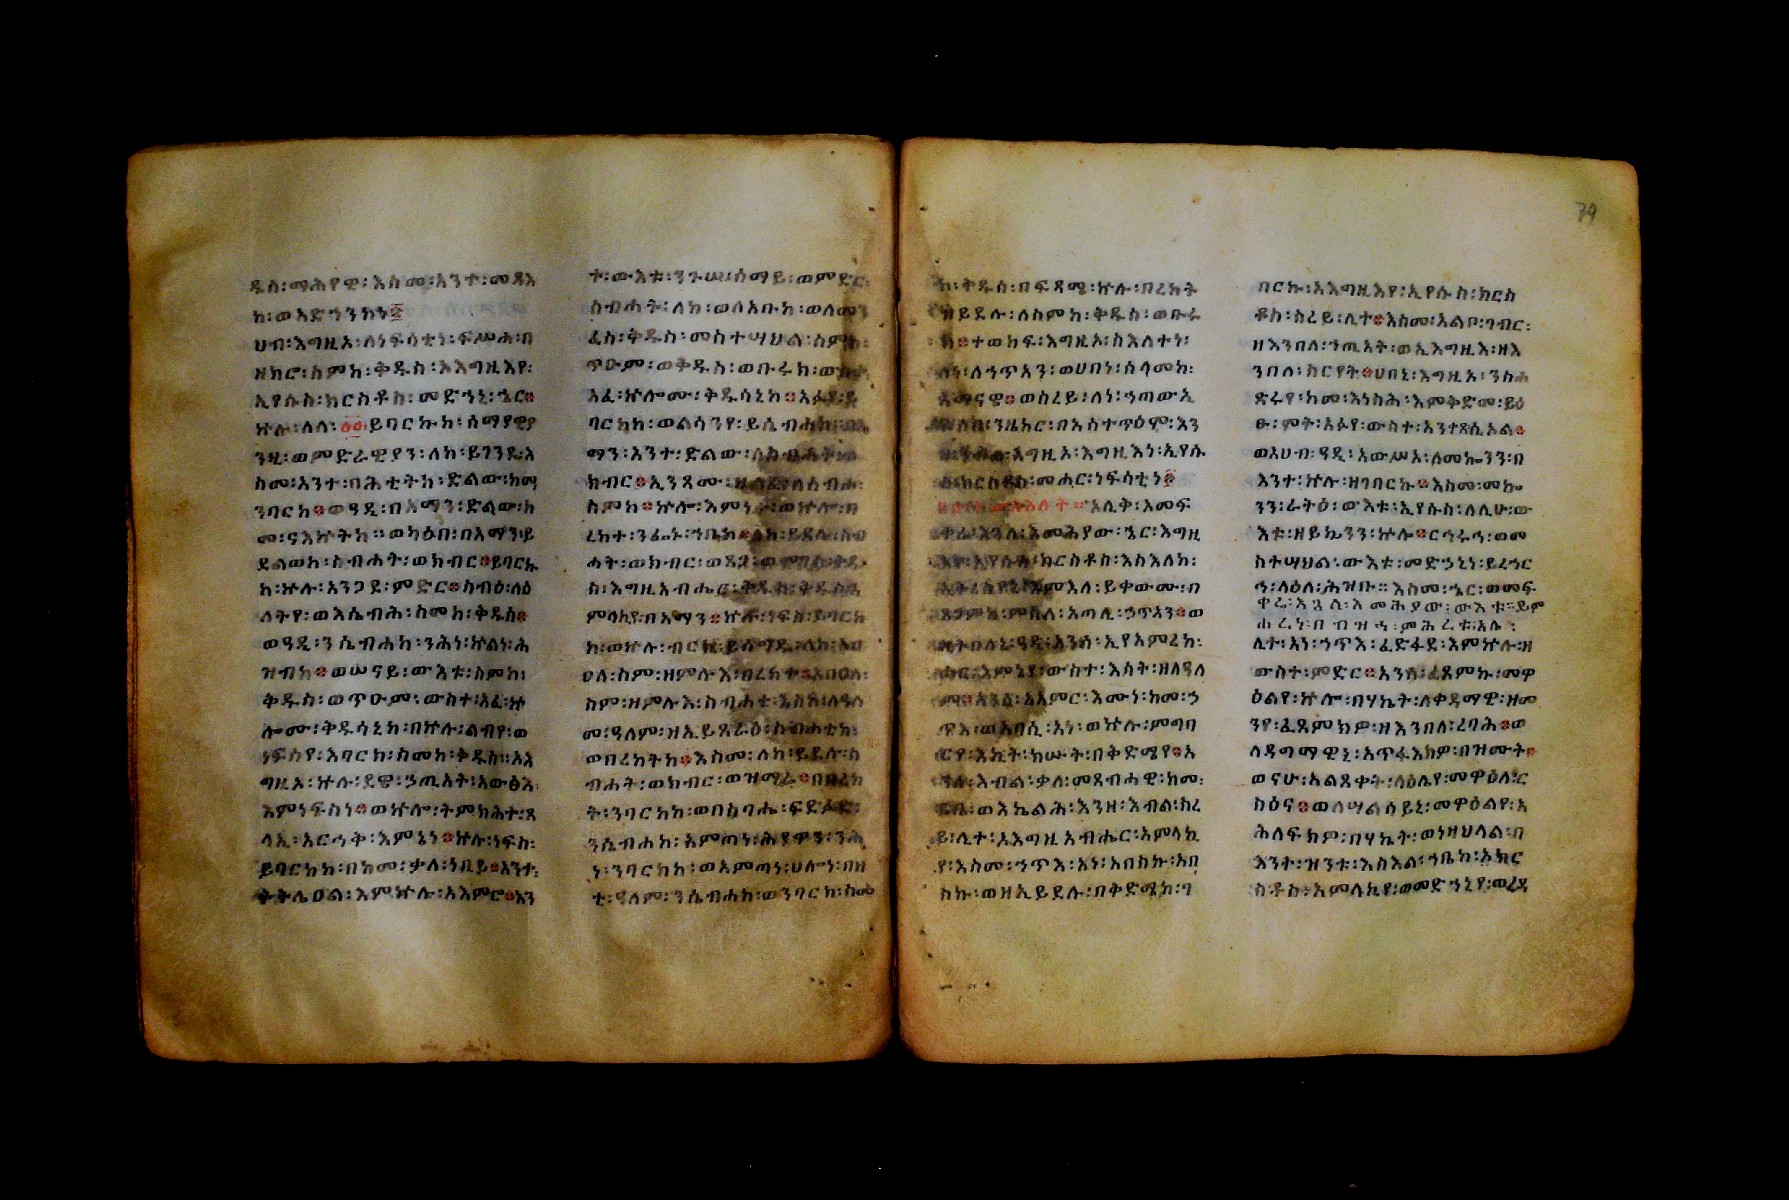 ዱስ፡ማሕየዊ፡እስመ፡አንተ፡መጻእ
ከ፡ወአድኀንከነ
ሀብ፡እግዚኦ፡ለነፍሳቲነ፡ፍሥሐ፡በ
ዘክሮ፡ስምከ፡ቅዱስ፡ኦእግዚእየ፡
ኢየሱስ፡ክርስቶስ፡መድኀኒ፡ኄር
ኵሉ፡ለለ፡ይባርኩከ፡ሰማያዊያ
ንዚ፡ወምድራዊያን፡ለከ፡ይገንዩ፡እ
ስመ፡አንተ፡በሕቲትከ፡ድልው፡ከማ
ንባርከ፡ወዓዲ፡በአማን፡ድልው፡ከ
መ፡ናእኵትከ። ወካዕበ፡በአማን፡ይ
ደልወከ፡ስብሐት፡ወክብር፡ይባርኩ
ከ፡ኵሉ፡አንጋደ፡ምድር፡ስብዕ፡ለዕ
ለትየ፡ወእሴብሕ፡ስመከ፡ቅዱስ
ወዓዲ፡ንሴብሐከ፡ንሕነ፡ኵልነ፡ሕ
ዝብከ፡ወሠናይ፡ውእቱ፡ስምከ፡
ቅዱስ፡ወጥዑም፡ውስተ፡አፈ፡ኵ
ሎሙ፡ቅዱሳኒከ፡በኵሉ፡ልብየ፡ወ
ነፍስየ፡እባርክ፡ስመከ፡ቅዱስ፡ኦእ
ግዚኦ፡ኵሉ፡ደዌ፡ኃጢአት፡አውፅእ
እምነፍስነ፡ወኵሎ፡ትምክሕተ፡ጸ
ላኢ፡አርሓቅ፡እምኔነ፡ኵሉ፡ነፍስ፡
ይባርከከ፡በከመ፡ቃለ፡ነቢይ፡አንተ፡
ትትሌዐል፡እምኵሉ፡አእምሮ፡አን
ተ፡ውእቱ፡ንጉሠ፡ሰማይ፡ወምድር፡
ስብሐት፡ለከ፡ወለአቡከ፡ወለመን
ፈስ፡ቅዱስ፡መስተሣህል፡ስምከ፡
ጥዑም፡ወቅዱስ፡ወቡሩክ፡
አፈ፡ኵሎሙ፡ቅዱሳኒከ፡አፉየ፡ይ
ባርከከ፡ወልሳንየ፡ይሴብሐከ፡
ማን፡አንተ፡ድልው፡ለስብሐት፡ወ
ክብር፡ኢንጸሙ፡
ስምከ፡ኵሎ፡እምነ፡ወኵሎ፡በ
ረከተ፡ንፌኑ፡ኀቤከ፡ለከ፡ይደሉ፡
ሓት፡ወክብር፡ወጸጋ፡
ስ፡እግዚአብሔር፡ቅዱስ፡ቅዱስ፡አ
ምላኪየ፡በአማን፡ኵሉ፡ነፍስ፡ይባርከ
ከ፡ወኵሉ፡ብርክ፡ይሰግድ፡ለከ፡
ዐለ፡ስም፡ዘምሉእ፡በረከተ፡
ስም፡ዘምሉእ፡ስብሐተ፡እስከ፡ለዓለ
መ፡ዓለም፡ዝኢይጸራዕ፡ስብሐቲከ፡
ወበረከትከ፡እስመ፡ለከ፡ይደሉ፡ስ
ብሐት፡ወክብር፡ወዝማሬ፡በበረከ
ት፡ንባርከከ፡ወበስባሔ፡ፍድፉድ፡
ንሴብሐከ፡አምጣነ፡ሕያዋን፡ንሕ
ነ፡ንባርከከ፡ወአምጣነ፡ሀሎነ፡በዘ
ቲ፡ዓለም፡ንሴብሐከ፡ወንባርክ፡ስመ
ከ፡ቅዱስ፡በፍጻሜ፡ኵሉ፡በረከት
ይደሉ፡ለስምከ፡ቅዱስ፡ወቡሩ
ክ፡ተወከፍ፡እግዚኦ፡ስእለተነ፡
ለነ፡ለኃጥአን፡ወሀበነ፡ሰላመከ፡
እማናዌ፡ወስረይ፡ለነ፡ኃጣውኢ
ነ፡ከመ፡ንዜክር፡በአስተጥዕሞ፡እን
እግዚኦ፡እግዚእነ፡ኢየሱ
ስ፡ክርስቶስ፡መሓር፡ነፍሳቲነ
አሊቅ፡አመፍ
ቀሬ፡እጓለ፡እመሕያው፡ኄር፡እግዚ
እየ፡ኢየሱስ፡ክርስቶስ፡እስእለከ፡
ይቀውሙ፡በ
ጸጋምከ፡ምስለ፡አጣሊ፡ኃጥአን፡ወ
ኢትበለኒ፡ዓዲ፡አንሰ፡ኢየአምረከ፡
ሑር፡እምኔየ፡ውስተ፡እሳት፡ዘለዓለ
ም፡እስመ፡አአምር፡እሙነ፡ከመ፡ኃ
ጥእ፡ወአባሲ፡አነ፡ወኵሉ፡ምግባ
ርየ፡እኪት፡ክሡት፡በቅድሜየ፡አ
ንሰ፡እብል፡ቃለ፡መጸብሓዊ፡ከመ፡
ደቤ፡ወእኬልሕ፡እንዘ፡እብል፡ስረ
ይ፡ሊተ፡ኦእግዚአብሔር፡አምላኪ
የ፡እስመ፡ኃጥእ፡አነ፡አበስኩ፡አበ
ስኩ፡ወዘኢይደሉ፡በቅድሜከ፡ገ
በርኩ፡ኦእግዚእየ፡ኢየሱስ፡ክርስ
ቶስ፡ስረይ፡ሊተ፡እስመ፡አልቦ፡ገብር፡
ዘእንበለ፡ኀጢአት፡ወኢእግዚእ፡ዘእ
ንበለ፡ስርየት፡ሀበኒ፡እግዚኦ፡ንስሐ
ጽሩየ፡ከመ፡እነስሕ፡እምቅድመ፡ይዕ
ፁ፡ምት፡አፉየ፡ውስተ፡አንተጸሲኦል
ወእሀብ፡ዓዲ፡አውሥአ፡ለመኰንን፡በ
እንተ፡ኵሉ፡ዘገባርኩ፡እስመ፡መኰ
ንን፡ራትዕ፡ውእቱ፡ኢየሱስ፡ለሊሁ፡ው
እቱ፡ዘይኴንን፡ኵሎ፡ርኅሩኅ፡ወመ
ስተሣህል፡ውእቱ፡መድኃኒነ፡ይረኅር
ኅ፡ላዕለ፡ሕዝቡ። እስመ፡ኄር፡ወመፍ
ቀሬ፡እጓለ፡እመሕያው፡ውእቱ።ይም
ሐረነ፡በብዝኃ፡ምሕረቱ፡አሌ፡
ሊተ፡አነ፡ኃጥእ፡ፈድፋደ፡እምኵሉ፡ዘ
ውስተ፡ምድር፡አንሰ፡ፈጸምኩ፡መዋ
ዕልየ፡ኵሎ፡በሃኬት፡ለቀዳማዊ፡ዘመ
ንየ፡ፈጸምክዎ፡ዘእንበለ፡ረባሕ፡ወ
ለዳግማዊኒ፡አጥፋእክዎ፡በዝሙት
ወናሁ፡አልጸቀት፡ላዕሌየ፡መዋዕለ፡ር
ስዕና፡ወለሣልሳይኒ፡መዋዕልየ፡አ
ሕለፍክዎ፡በሃኬት፡ወነዝህላል፡በ
እንተ፡ዝንቱ፡እስእል፡ኀቤከ፡ኦክር
ስቶስ፡አምላኪየ፡ወመድኀኒየ፡ወረዳ
79